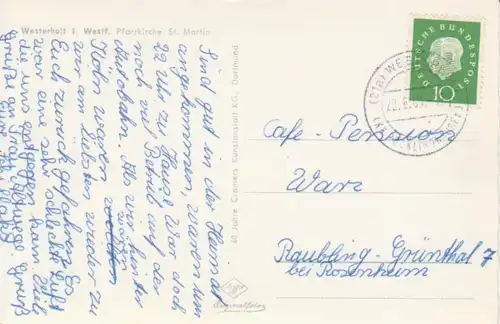 Westerholt i. Westf. Pfarrkirche St. Martin
Sind gut in der Heimat
angekommen, waren um
22 Uhr zu Hause War doch
noch viel Betrieb auf der
Autobahn. Als wir hinter
Köln waren
wir am liebsten wieder zu
Euch zurück gefahren. Es
war eine sehr schlechte Luft
die uns entgegen kam. Viele
Grüße an
60 Jahre Cramers Kunstanstalt KG., Dortmund
Agfa
DEUTSCHE BUNDESPOST
10
(21b) WE
(KR. RECKLINGHAUSEN)
Cafe - Pension
Warz
Raubling-Grünthal 7
bei Rosenheim